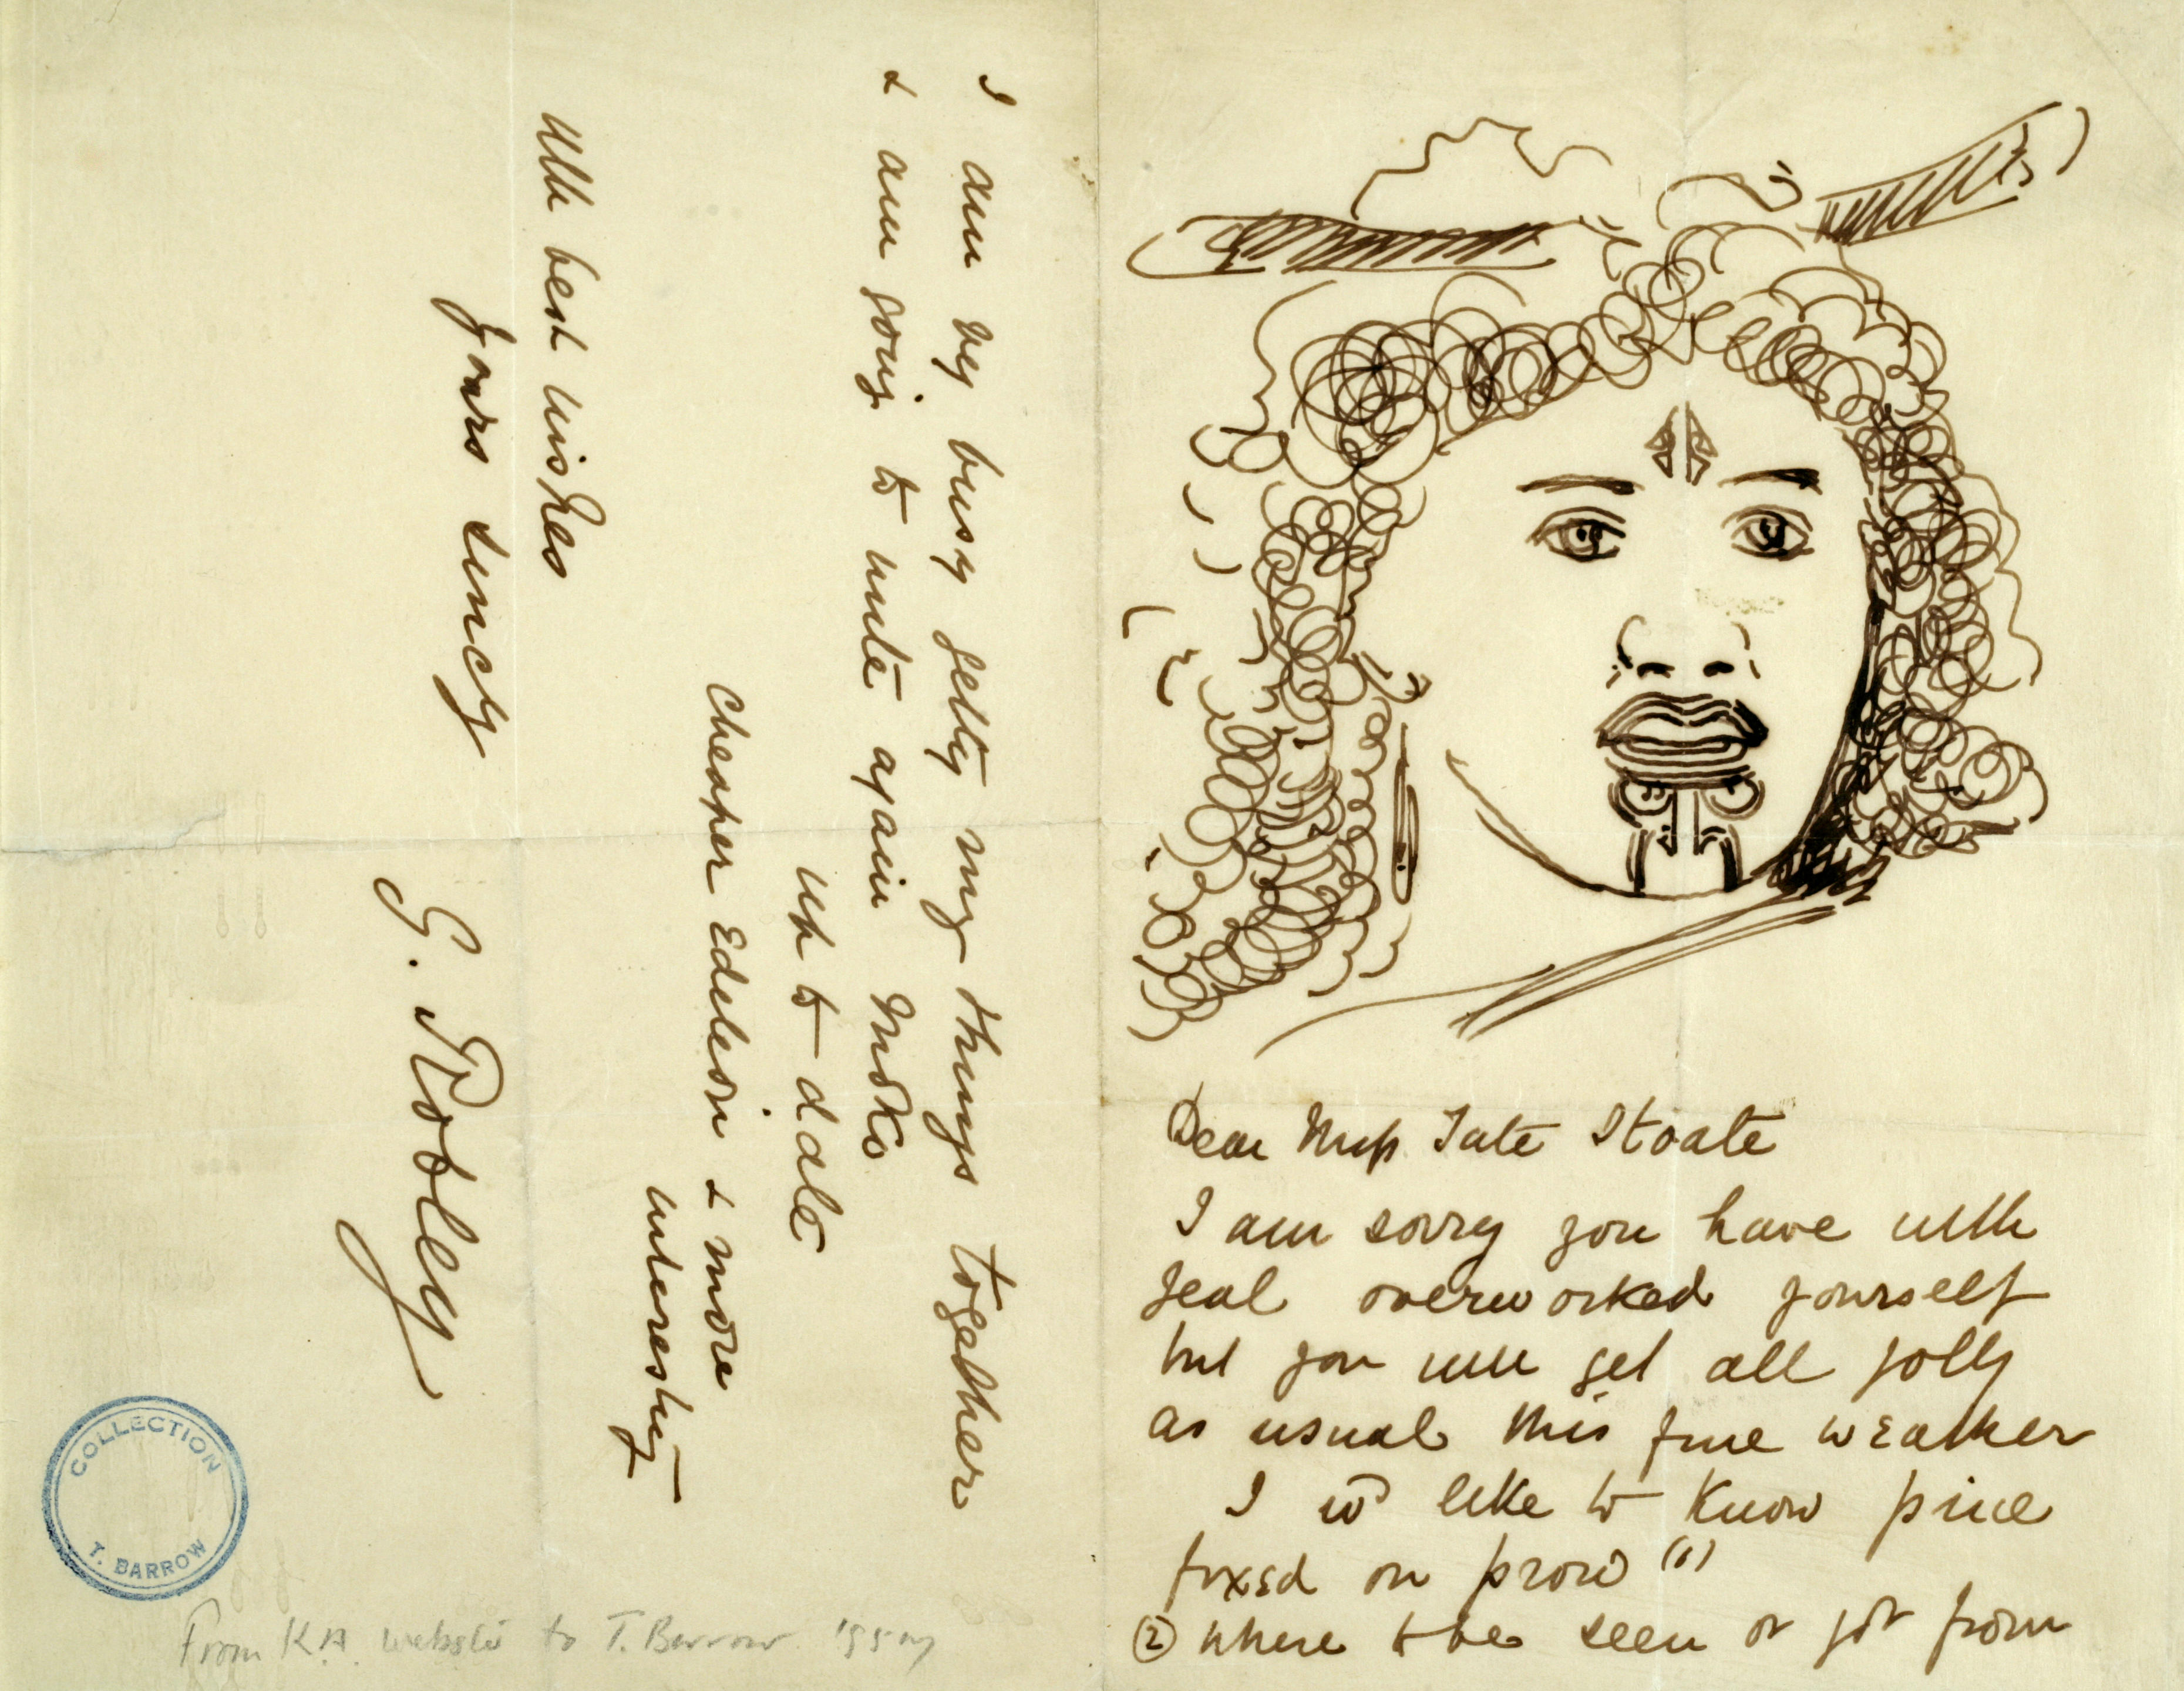 Dear Miss Tate Stoate
I am sorry you have with
zeal overworked yourself
but you will get all jolly
as usual this fine weather
I wd like to know price
fixed on prow (1)
② where to be seen or got from
I am vy busy gettg my things together
& am going to write again Moko
up to date
Cheaper Edition & more
interestg
With best wishes
Yours sincy
G. Robley
COLLECTION
T. BARROW
From K.A. Webster to T. Barrow